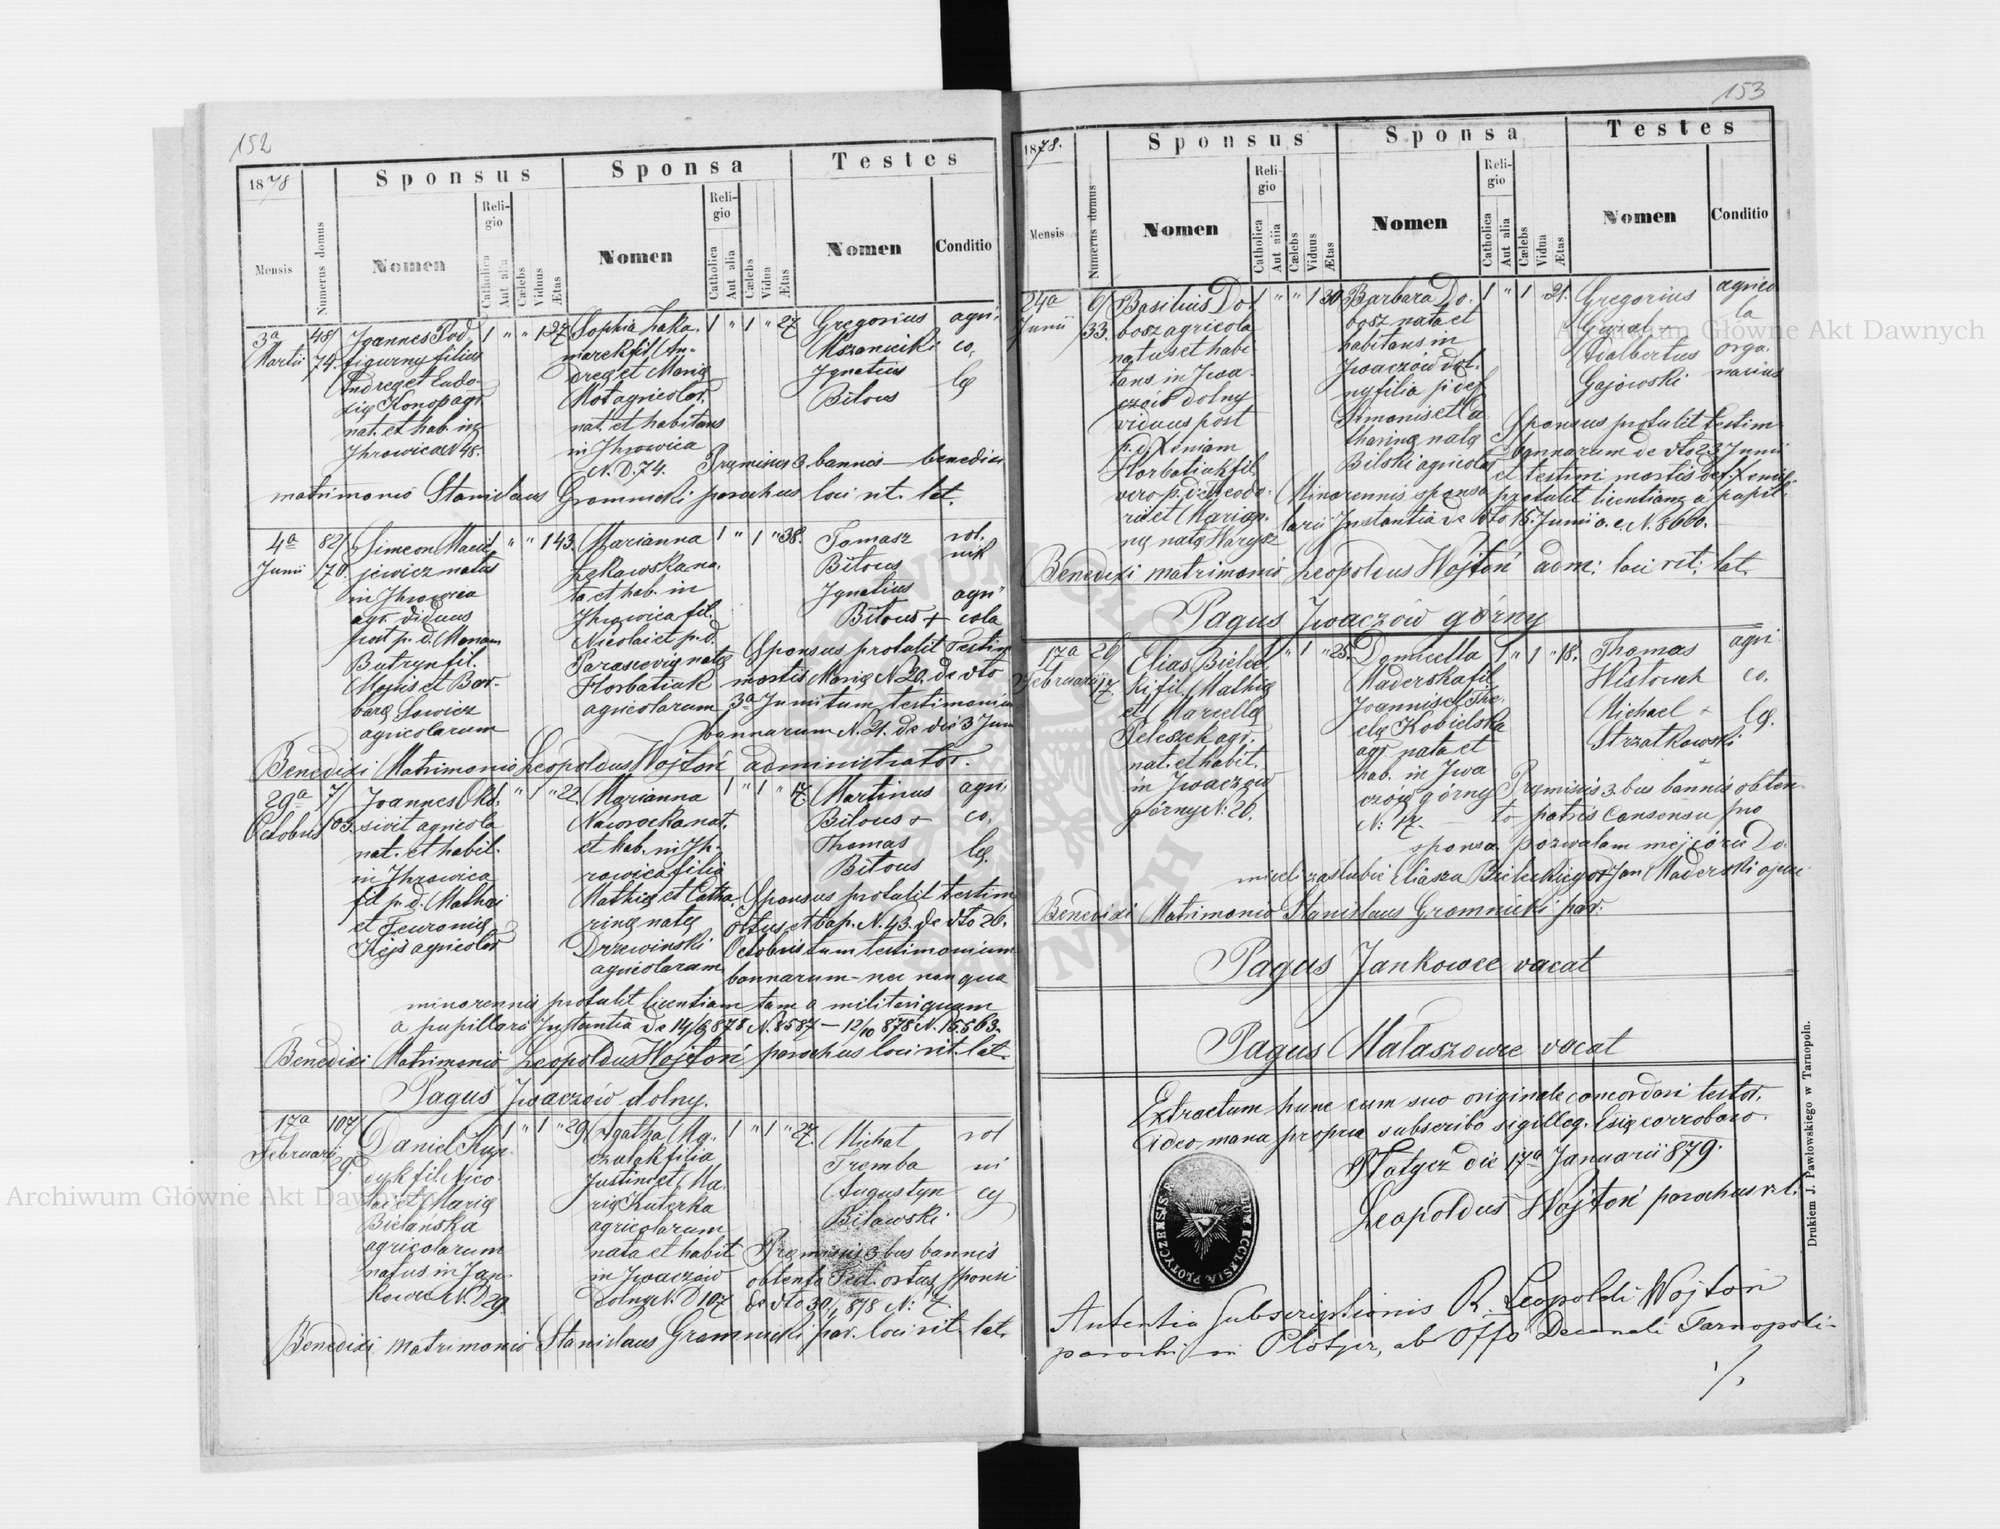 152
1878
Mensis
Numerus domus
Sponsus
Nomen
Religio
Catholica
Aut alia
Cælebs
Viduus
Ætas
Sponsa
Nomen
Religio
Catholica
Aut alia
Cælebs
Vidua
Ætas
Testes
Nomen
Conditio
3a Martii
48/74.
Joannes Pod-
figurny filius
Andreæ et Eudo-
xiæ Konop agr.
nat. et hab. in
Ihrowica N 48.
1 " " 1 27
Sophia Haka-
marek fil. An-
dreæ et Mariæ
Mot agricolar.
nat. et habitans
in Ihrowica
N. D. 74.
1 " 1 " 27
Gregorius
Mszaniecki
Ignatius
Bilous
agri-
co-
læ
Præmissis 3 bannis benedixi
matrimonio Stanislaus Gromnicki parochus loci rit. lat.
4a Junii
82/70.
Simeon Maciè-
jewicz natus
in Ihrowica
agr. viduus
post p. d. Mariam
Butryn fil.
Mojsis et Bar-
baræ Sawicz
agricolarum
" " 1 43.
Marianna
Łękawska na-
ta et hab. in
Ihrowica fil.
Nicolai et p. d.
Parasceviæ natæ
Horbatiuk
agricolarum
1 " 1 " 38.
Tomasz
Bilous
Ignatius
Bilous +
rol-
nik
agri-
cola
Sponsus protulit testim
mortis Mariæ N 20. de dto
3a Junii tum testimonium
bannarum N. 21. de die 3 Juni
Benedixi Matrimonio Leopoldus Wojtoń administrator.
29a Octobris
7/103.
Joannes Old-
sivit agricola
nat. et habit.
in Ihrowica
fil p. d. Mathæi
et Fevroniæ
Kejs agricolar.
" 1 " 22.
Marianna
Nawrocka nat.
et hab. in Ih-
rowica filia
Mathiæ et Catha-
rinæ natæ
Drzewinski
agricolarum
1 " 1 " 17
Martinus
Bilous +
Thomas
Bilous
agri-
co-
læ.
Sponsus protulit testim
ortus et bap. N. 43. de dto 26.
Octobris tum testimonium
bannarum - nec non qua
minorennis protulit licentiam tam a militari quam
a pupillari Instantia de 14/6 878 N. 8587 — 12/10 878 N. 15563.
Benedixi Matrimonio Leopoldus Wojtoń parochus loci rit. lat.
Pagus Iwaczów dolny.
17a Februarii
107/29
Daniel Kup-
cyk fil. Nico-
lai et Mariæ
Bielanska
agricolarum
natus in Jan-
kowce N. D 29.
1 " 1 " 29
Agatha Ma-
czulak filia
Justini et Ma-
riæ Kuterka
agricolarum
nata et habit
in Iwaczów
dolny N. D 107
1 " 1 " 27.
Michał
Tremba
Augustyn
Bilawski
rol
ni
cy
Præmissis 3 bus bannis
obtento Test. ortus sponsi
de dto 30/1 878 N: 7.
Benedixi matrimonio Stanislaus Gromnicki par. loci rit lat.
153
1878.
Mensis
Numerus domus
Sponsus
Nomen
Religio
Catholica
Aut alia
Cælebs
Viduus
Ætas
Sponsa
Nomen
Religio
Catholica
Aut alia
Cælebs
Vidua
Ætas
Testes
Nomen
Conditio
24a Junii
9/33.
Basilius Do-
bosz agricola
natus et habi-
tans in Iwa-
czów dolny
viduus post
p. d. Xeniam
Horbatiuk fil.
vero p. d. Theodo-
ri et Marian-
næ natæ Harysz
1 " " 1 30
Barbara Do-
bosz nata et
habitans in
Iwaczów dol-
ny filia p. def.
Simonis et Ca-
tharinæ natæ
Bilski agricolar
1 " 1 " 21.
Gregorius
Góral
Adalbertus
Gajowski
agrico
la
orga-
narius
Sponsus protulit testim
bannarum de dto 23 Junii
et testim mortis def. Xeniæ
Minorennis sponsa protulit licentiam a pupil-
lari Instantia de dto 15. Junii a. c. N. 8660.
Benedixi matrimonio Leopoldus Wojtoń adm: loci rit: lat.
Pagus Iwaczów górny
17a Februarii
26/17.
Elias Bielec-
ki fil. Mathiæ
et Marcellæ
Peleszek agr.
nat. et habit.
in Iwaczów
górny N: 26.
1 " 1 " 25.
Domicella
Maderska fil
Joannis et The-
clæ Kobielska
agr. nata et
hab. in Iwa
czów górny
N: 17.
1 " 1 " 18.
Thomas
Wistouch
Michael +
Strzałkowski
agri
co-
læ.
Præmissis 3. bus bannis obten-
to patris consensu pro
sponsa, pozwalam mej córce Do-
miceli zaślubić Eliasza Bieleckiego + Jan Maderski ojciec
Benedixi Matrimonio Stanislaus Gromnicki par.
Pagus Jankowce vacat
Pagus Małaszowce vacat
Extractum hunc cum suo originale concordari testor.
adeo manu propria subscribo sigilloq. Esiæ corroboro.
Płotycz die 17a Januarii 879.
Leopoldus Wojtoń parochus r. l.
ECCLESIÆ PŁOTYCZENSIS
Autentia Subscriptionis R. Leopoldi Wojton
parochi in Płotycz, ab Offo Decanali Tarnopoli-
Drukiem J. Pawłowskiego w Tarnopolu.
Archiwum Główne Akt Dawnych
Archiwum Główne Akt Dawnych